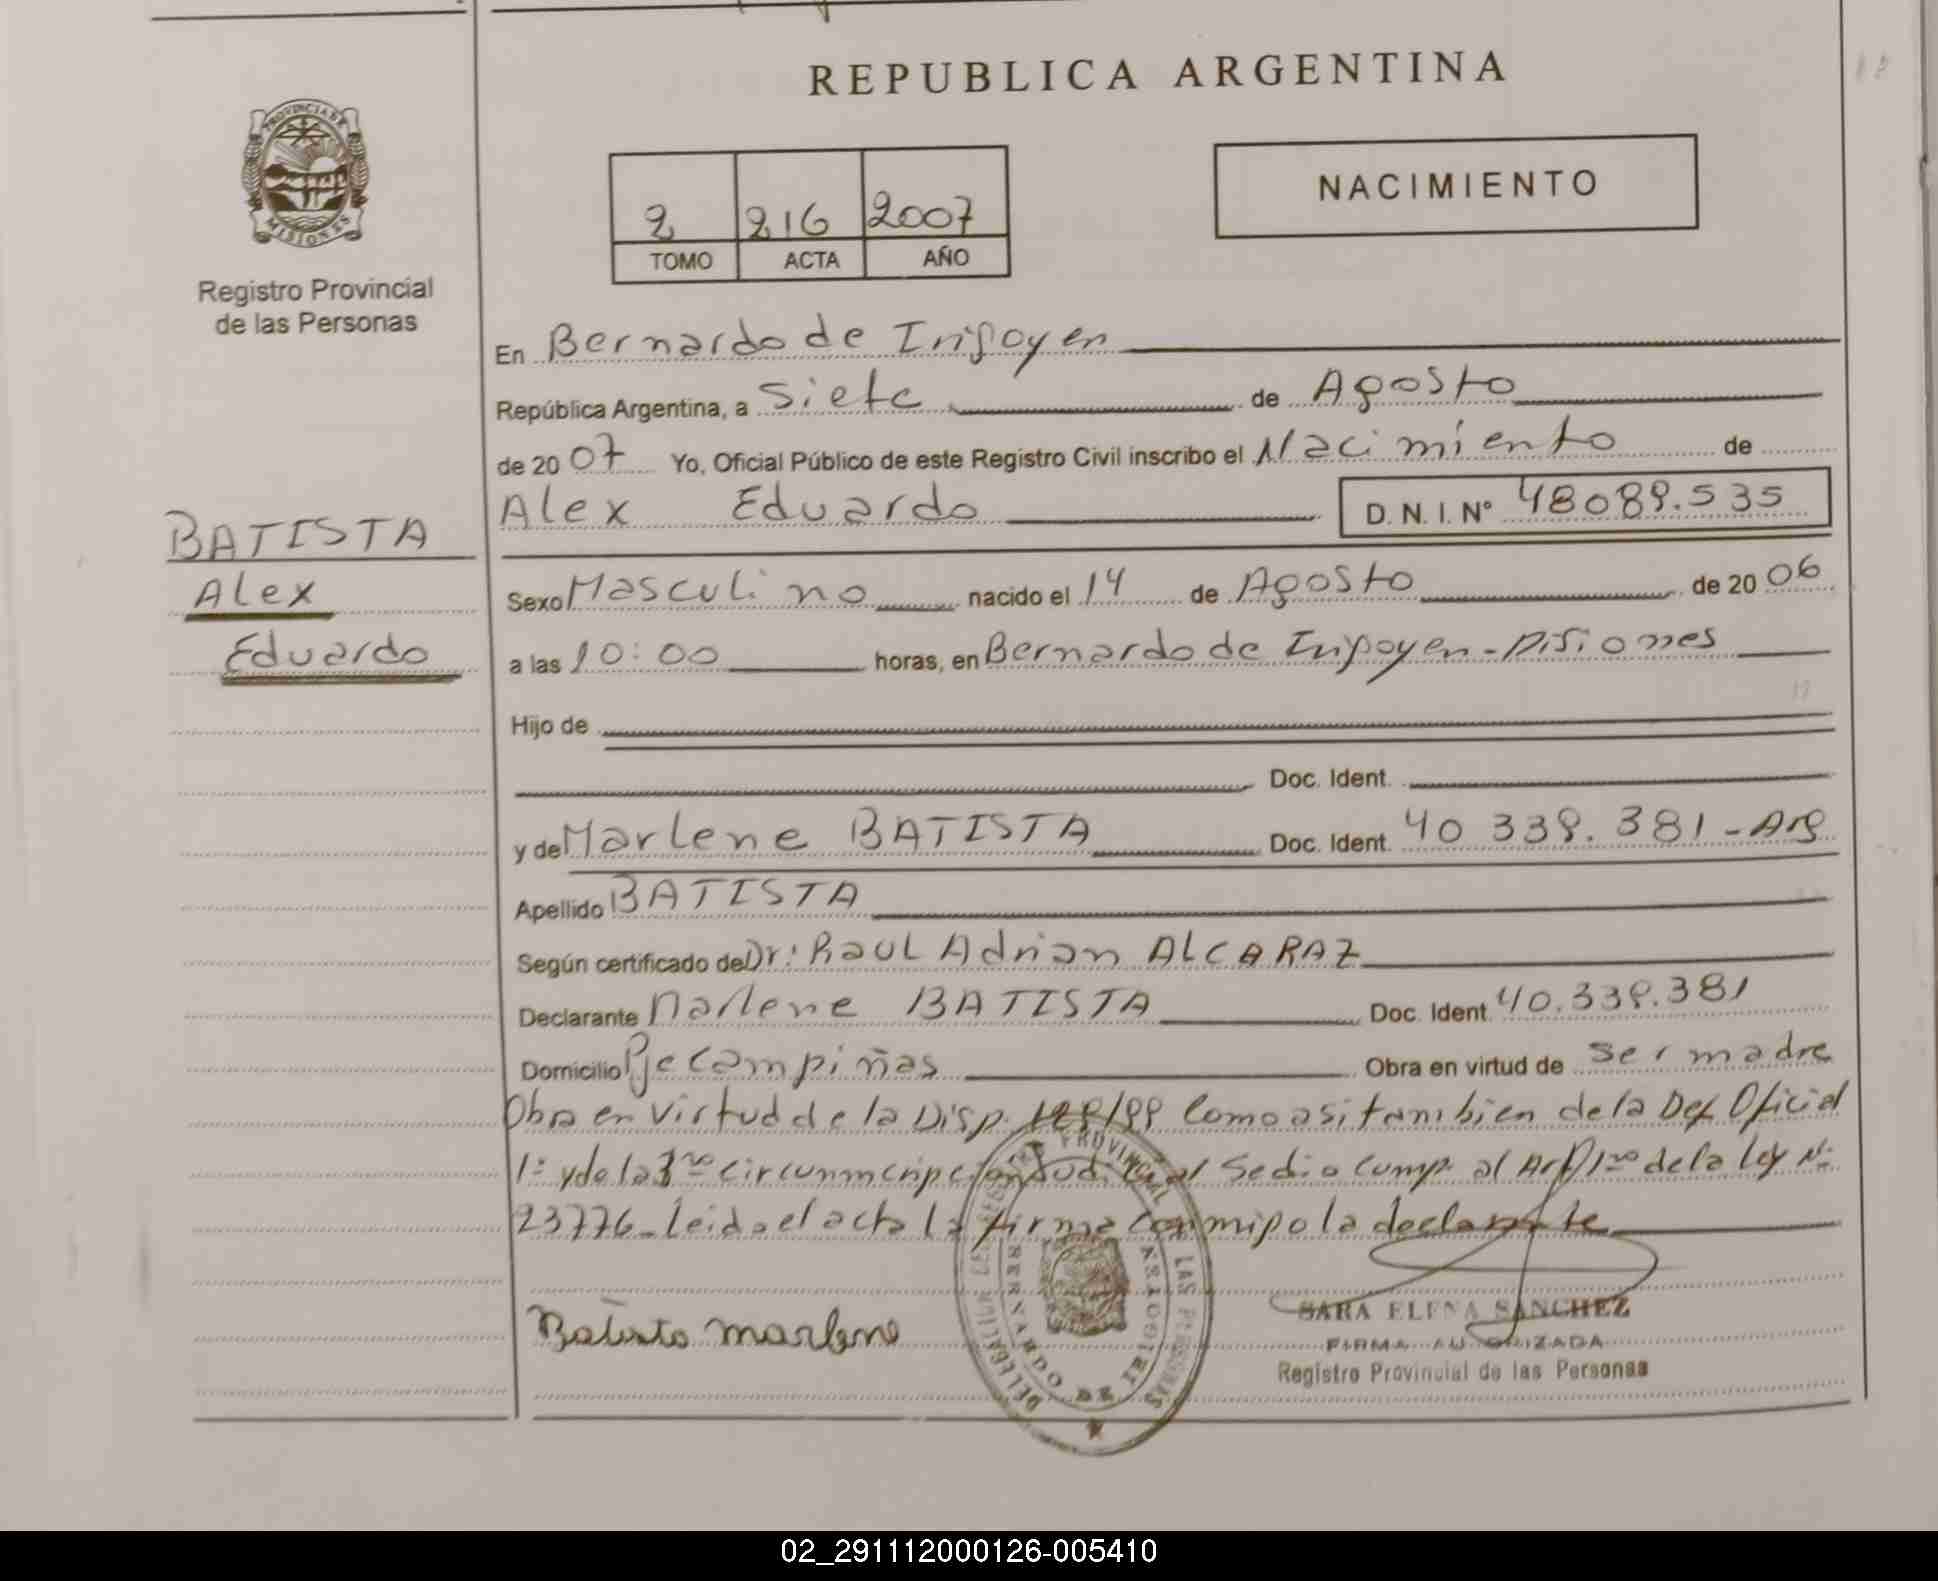 REPUBLICA ARGENTINA
PROVINCIA DE
MISIONES
Registro Provincial
de las Personas
2 216 2007
TOMO ACTA AÑO
NACIMIENTO
En Bernardo de Irigoyen
República Argentina, a Siete de Agosto
de 20 07 Yo, Oficial Público de este Registro Civil inscribo el Nacimiento de
Alex Eduardo D. N. I. Nº 48089.535
BATISTA
Alex
Eduardo
Sexo Masculino nacido el 14 de Agosto de 20 06
a las 10:00 horas, en Bernardo de Irigoyen - Misiones
Hijo de
Doc. Ident.
y de Marlene BATISTA Doc. Ident. 40 339.381 - Arg
Apellido BATISTA
Según certificado de Dr: Raul Adrian ALCARAZ
Declarante Marlene BATISTA Doc. Ident. 40.339.381
Domicilio Pje Campiñas Obra en virtud de ser madre
Obra en virtud de la Disp. /99 Como asi tambien de la Def Oficial
1º y de la 3ra circunmcripcion Judicial Sedio cump. al Art 1ro de la Ley Nº
23776_ Leida el acta la firma conmigo la declarante
Batista marlene
SARA ELENA SANCHEZ
FIRMA AUTORIZADA
Registro Provincial de las Personas
PROVINCIAL DE LAS PERSONAS
BERNARDO DE IRIGOYEN
02_291112000126-005410